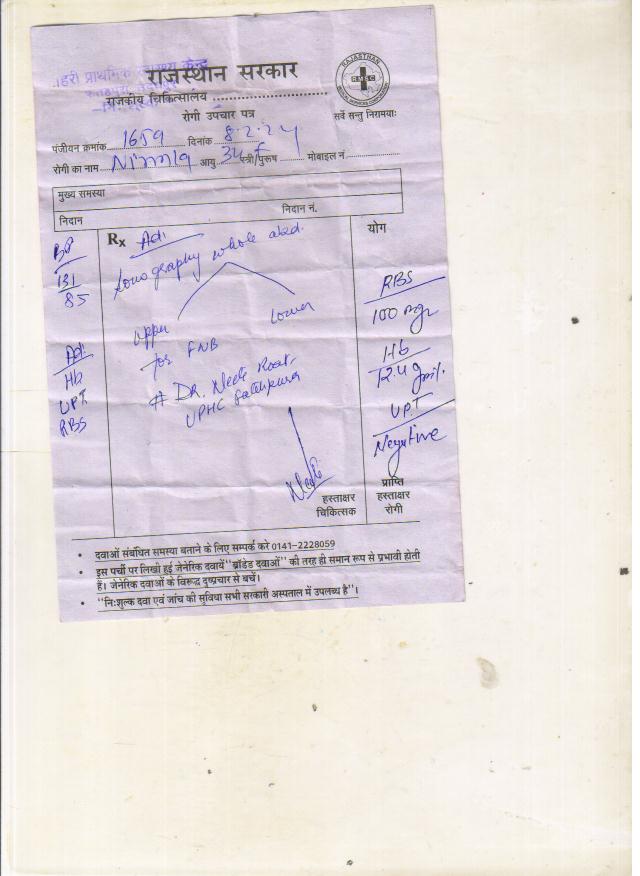 राजस्थान सरकार
RAJASTHAN
RMSC
राजकीय चिकित्सालय
रोगी उपचार पत्र
सर्वे सन्तु निरामयाः
पंजीयन क्रमांक 1659 दिनांक 8.2.24
रोगी का नाम Nirmla आयु 34 स्त्री/पुरूष F मोबाइल नं
मुख्य समस्या
निदान निदान नं.
Rx Adi. योग
BP
131
85
sonography whole abd.
upper lower
for FNB
# DR. Neele
UPHC
Adi
Hb
UPT
RBS
RBS
100 mg
Hb
12.4 gm%.
UPT
Negative
हस्ताक्षर
चिकित्सक
प्राप्ति
हस्ताक्षर
रोगी
• दवाओं संबंधित समस्या बताने के लिए सम्पर्क करे 0141-2228059
• इस पर्ची पर लिखी हुई जेनेरिक दवायें "ब्रांडेड दवाओं" की तरह ही समान रूप से प्रभावी होती
हैं। जेनेरिक दवाओं के विरूद्ध दुष्प्रचार से बचें।
• "निःशुल्क दवा एवं जांच की सुविधा सभी सरकारी अस्पताल में उपलब्ध है"।